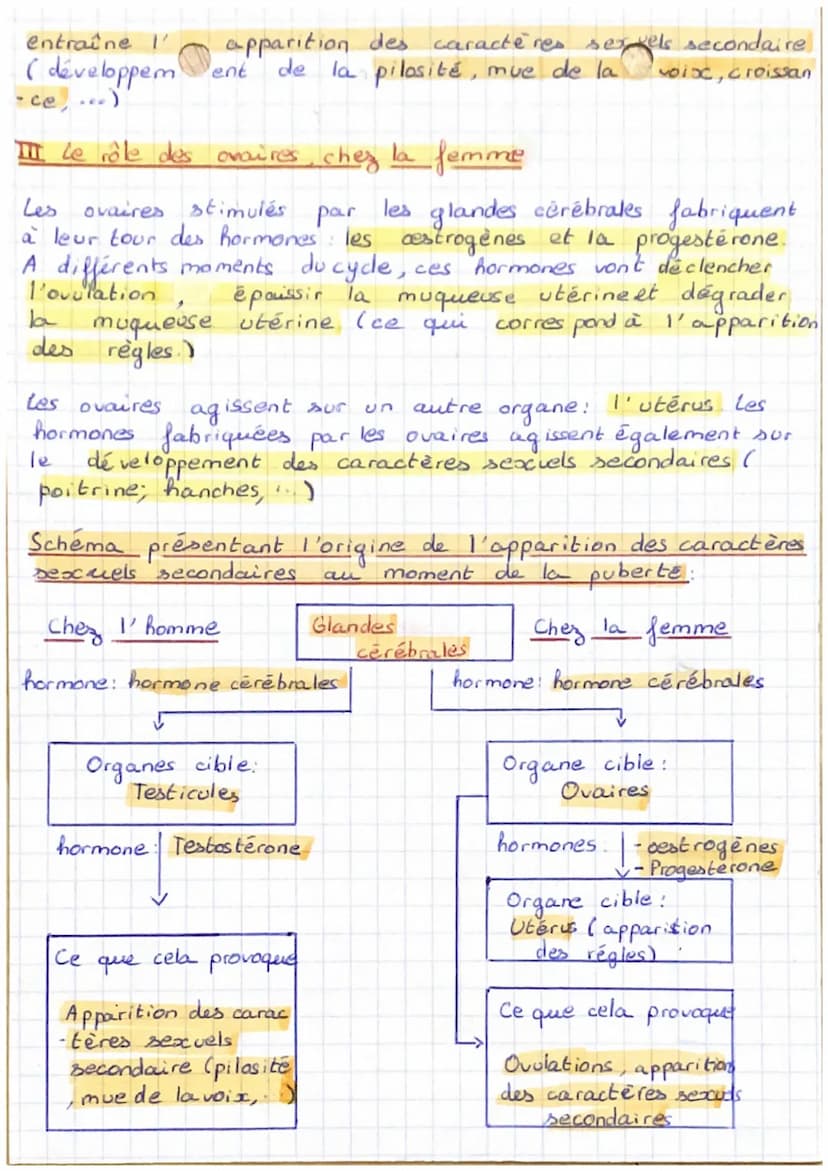 entraîne l' apparition des caractères sexuels secondaire
( développem ent de la pilosité, mue de la voix, croissan
-ce, ...)
III Le rôle des ovaires chez la femme
Les ovaires stimulés par les glandes cérébrales fabriquent
à leur tour des hormones : les œstrogènes et la progestérone.
A différents moments du cycle, ces hormones vont déclencher
l'ovulation, épaissir la muqueuse utérine et dégrader
la muqueuse utérine (ce qui correspond à l'apparition
des règles.)
Les ovaires agissent sur un autre organe: l'utérus. Les
hormones fabriquées par les ovaires agissent également sur
le développement des caractères sexuels secondaires (
poitrine; hanches, ...)
Schéma présentant l'origine de l'apparition des caractères
sexuels secondaires au moment de la puberté :
Chez l'homme
Glandes
cérébrales
Chez la femme
hormone: hormone cérébrales
hormone: hormone cérébrales
Organes cible:
Testicules
Organe cible :
Ovaires
hormone: Testostérone
hormones:
- oestrogènes
- Progesterone
Organe cible :
Utérus (apparition
des règles)
Ce que cela provoque
Apparition des carac
-tères sexuels
secondaire (pilosité
, mue de la voix, ...)
Ce que cela provoque
Ovulations, apparition
des caractères sexuels
secondaires